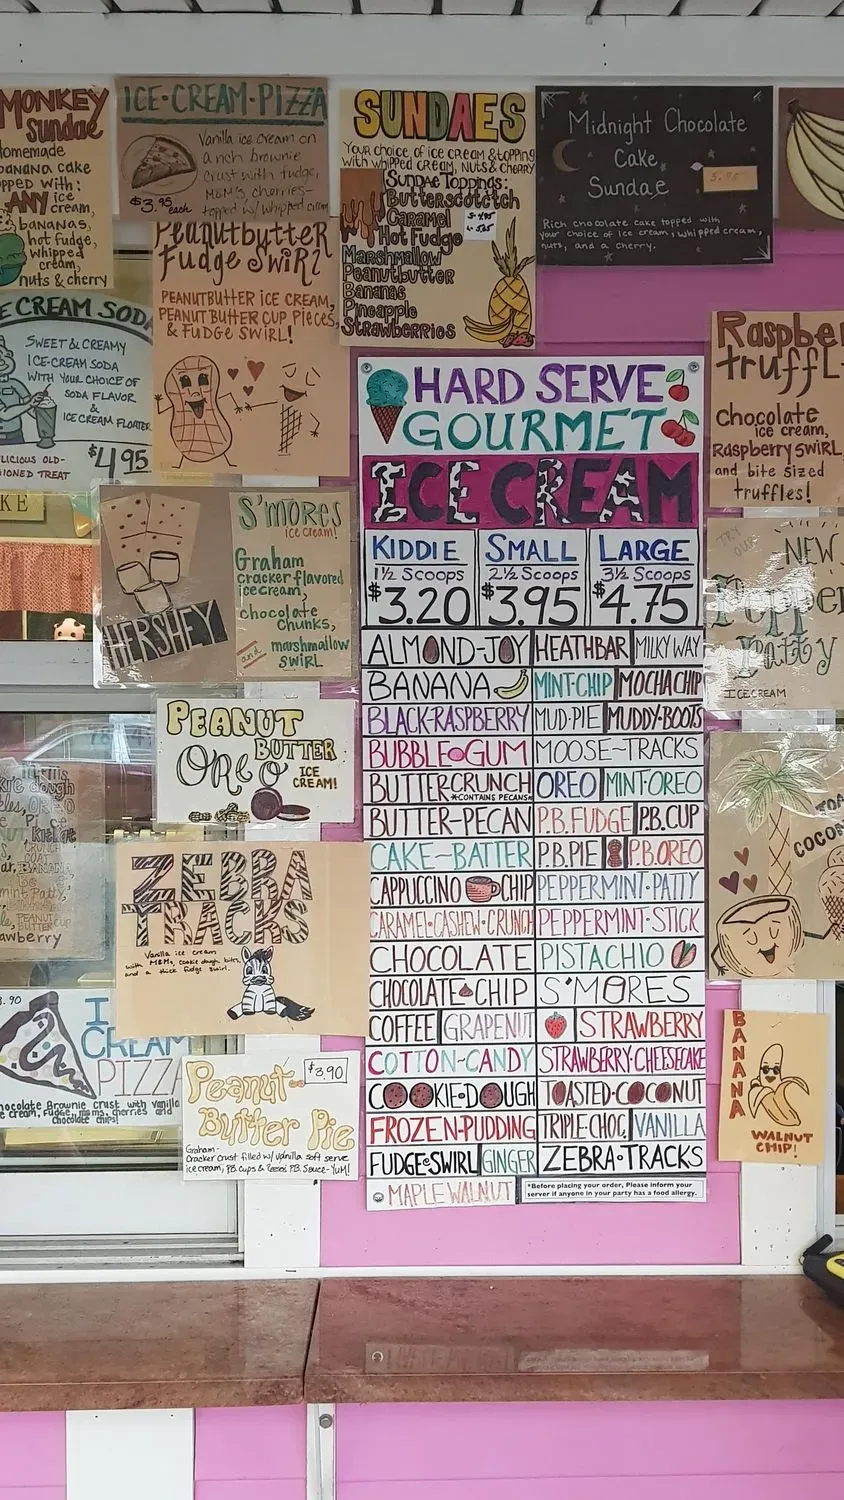 MONKEY
Sundae
Homemade
banana cake
topped with:
ANY ice
cream,
bananas,
hot fudge,
whipped
cream,
nuts & cherry
ICE·CREAM·PIZZA
Vanilla ice cream on
a rich brownie
crust with fudge,
M&M's, cherries-
topped w/ whipped cream
$3.95 each
SUNDAES
Your choice of ice cream & topping
with whipped cream, nuts & cherry
Sundae Toppings:
Butterscotch
Caramel
Hot Fudge
Marshmallow
Peanutbutter
Bananas
Pineapple
Strawberries
Midnight Chocolate
Cake
Sundae
Rich chocolate cake topped with
your choice of ice cream, whipped cream,
nuts, and a cherry.
Peanutbutter
Fudge Swirl
PEANUTBUTTER ICE CREAM,
PEANUTBUTTER CUP PIECES,
& FUDGE SWIRL!
E CREAM SODA
SWEET & CREAMY
ICE-CREAM SODA
WITH YOUR CHOICE OF
SODA FLAVOR
&
ICE CREAM FLOATER
LICIOUS OLD-
IONED TREAT
$4.95
KE
S'mores
ice cream!
Graham
cracker flavored
ice cream,
chocolate
chunks,
and marshmallow
swirl
HERSHEY
PEANUT
BUTTER
OREO
ICE
CREAM!
ZEBRA
TRACKS
Vanilla ice cream
with M&Ms, cookie dough bites
and a thick fudge swirl.
3.90
I
CREAM
PIZZA
hocolate Brownie crust with vanilla
e cream, Fudge, m&ms, cherries and
chocolate chips!
Peanut-
Butter Pie
$3.90
Graham-
Cracker crust filled w/ vanilla soft serve
ice cream, P.B. cups & Reeses P.B. Sauce-YUM!
HARD SERVE
GOURMET
ICE CREAM
KIDDIE
1½ Scoops
$3.20
SMALL
2½ Scoops
$3.95
LARGE
3½ Scoops
$4.75
ALMOND-JOY HEATHBAR MILKY WAY
BANANA MINT·CHIP MOCHA CHIP
BLACK·RASPBERRY MUD·PIE MUDDY·BOOTS
BUBBLE GUM MOOSE~TRACKS
BUTTER·CRUNCH OREO MINT·OREO
*CONTAINS PECANS*
BUTTER-PECAN P.B.FUDGE P.B.CUP
CAKE~BATTER P.B.PIE P.B.OREO
CAPPUCCINO CHIP PEPPERMINT·PATTY
CARAMEL·CASHEW·CRUNCH PEPPERMINT·STICK
CHOCOLATE PISTACHIO
CHOCOLATE CHIP S'MORES
COFFEE GRAPENUT STRAWBERRY
COTTON~CANDY STRAWBERRY·CHEESECAKE
COOKIE·DOUGH TOASTED·COCONUT
FROZEN·PUDDING TRIPLE·CHOC. VANILLA
FUDGE SWIRL GINGER ZEBRA·TRACKS
MAPLE WALNUT
*Before placing your order, Please inform your
server if anyone in your party has a food allergy.
Raspber
truffl
Chocolate
ice cream,
Raspberry swirl,
and bite sized
truffles!
TRY
OUR
NEW
Pepper
Patty
ICECREAM
TOA
COCON
BANANA
WALNUT
CHIP!